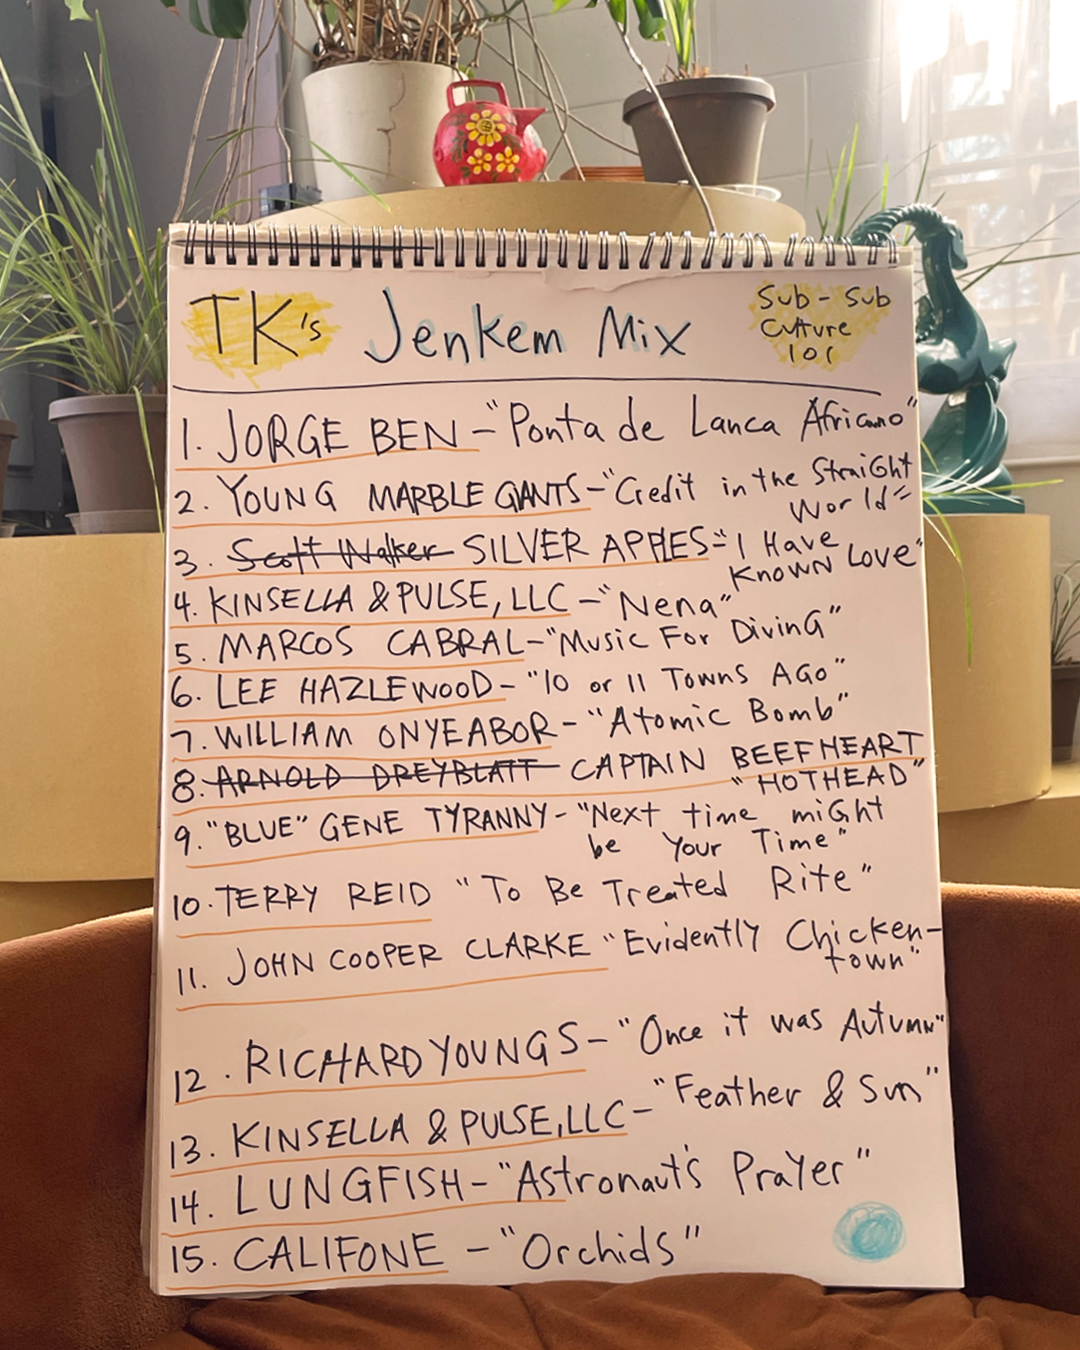 TK's Jenkem Mix
Sub - Sub
Culture
101
1. JORGE BEN - "Ponta de Lanca Africano"
2. YOUNG MARBLE GIANTS - "Credit in the Straight
World"
3. Scott Walker SILVER APPLES - "I Have
Known Love"
4. KINSELLA & PULSE, LLC - "Nena"
5. MARCOS CABRAL - "Music For Diving"
6. LEE HAZLEWOOD - "10 or 11 Towns Ago"
7. WILLIAM ONYEABOR - "Atomic Bomb"
8. ARNOLD DREYBLATT CAPTAIN BEEFHEART
"HOTHEAD"
9. "BLUE" GENE TYRANNY - "Next time might
be Your Time"
10. TERRY REID "To Be Treated Rite"
11. JOHN COOPER CLARKE "Evidently Chicken-
town"
12. RICHARD YOUNGS - "Once it was Autumn"
13. KINSELLA & PULSE, LLC - "Feather & Sun"
14. LUNGFISH - "Astronaut's Prayer"
15. CALIFONE - "Orchids"